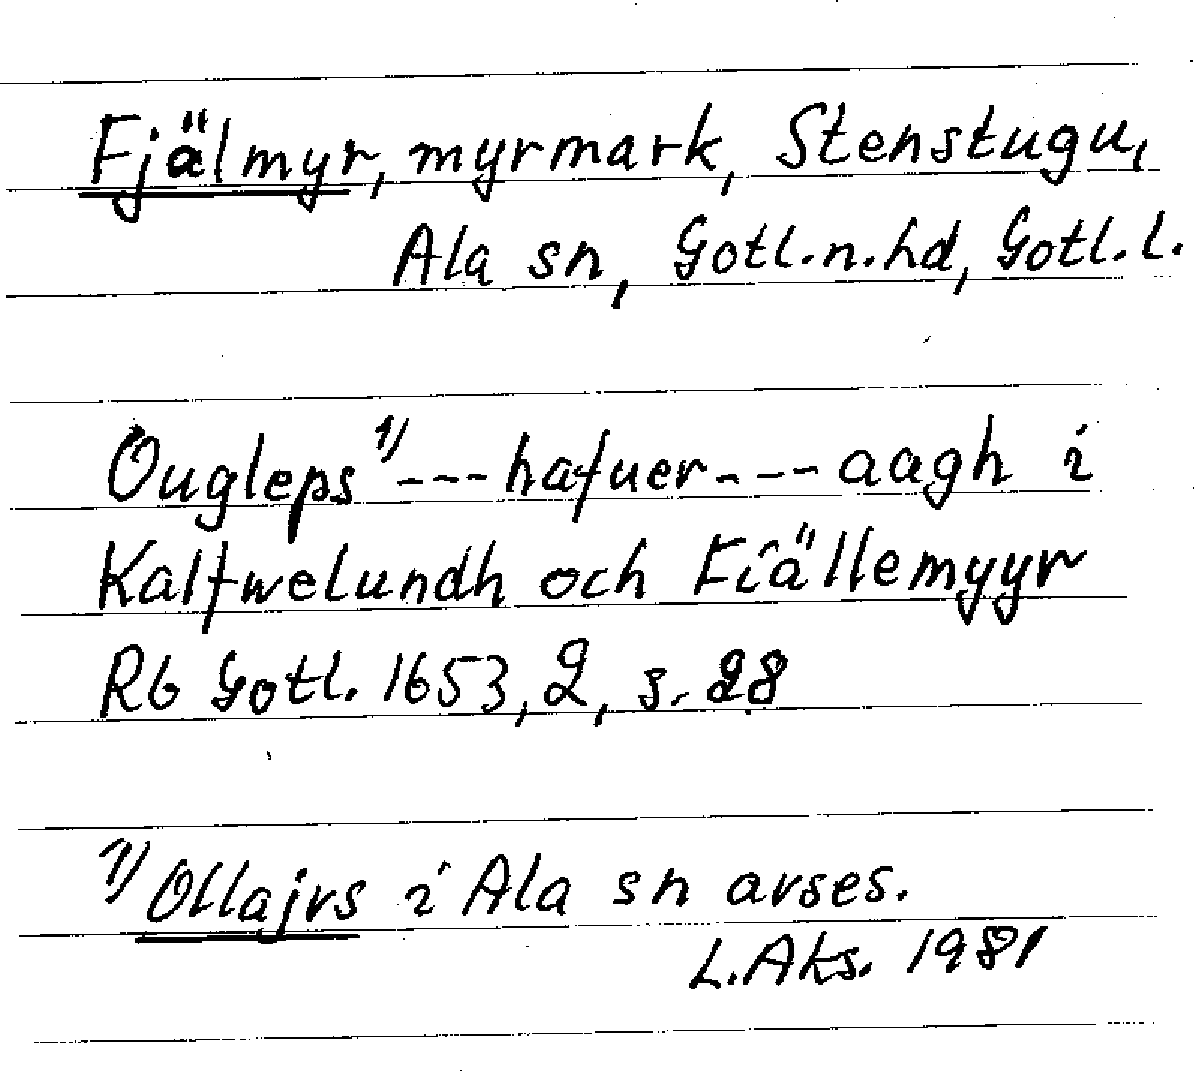 Fjälmyr, myrmark, Stenstugu,
Ala sn, Gotl.n.hd, Gotl.l.
Ougleps 1) --- hafuer --- aagh i
Kalfwelundh och Fiällemyyr
Rb Gotl. 1653, 2, s. 28
1) Ollajvs i Ala sn avses.
L.Aks. 1981